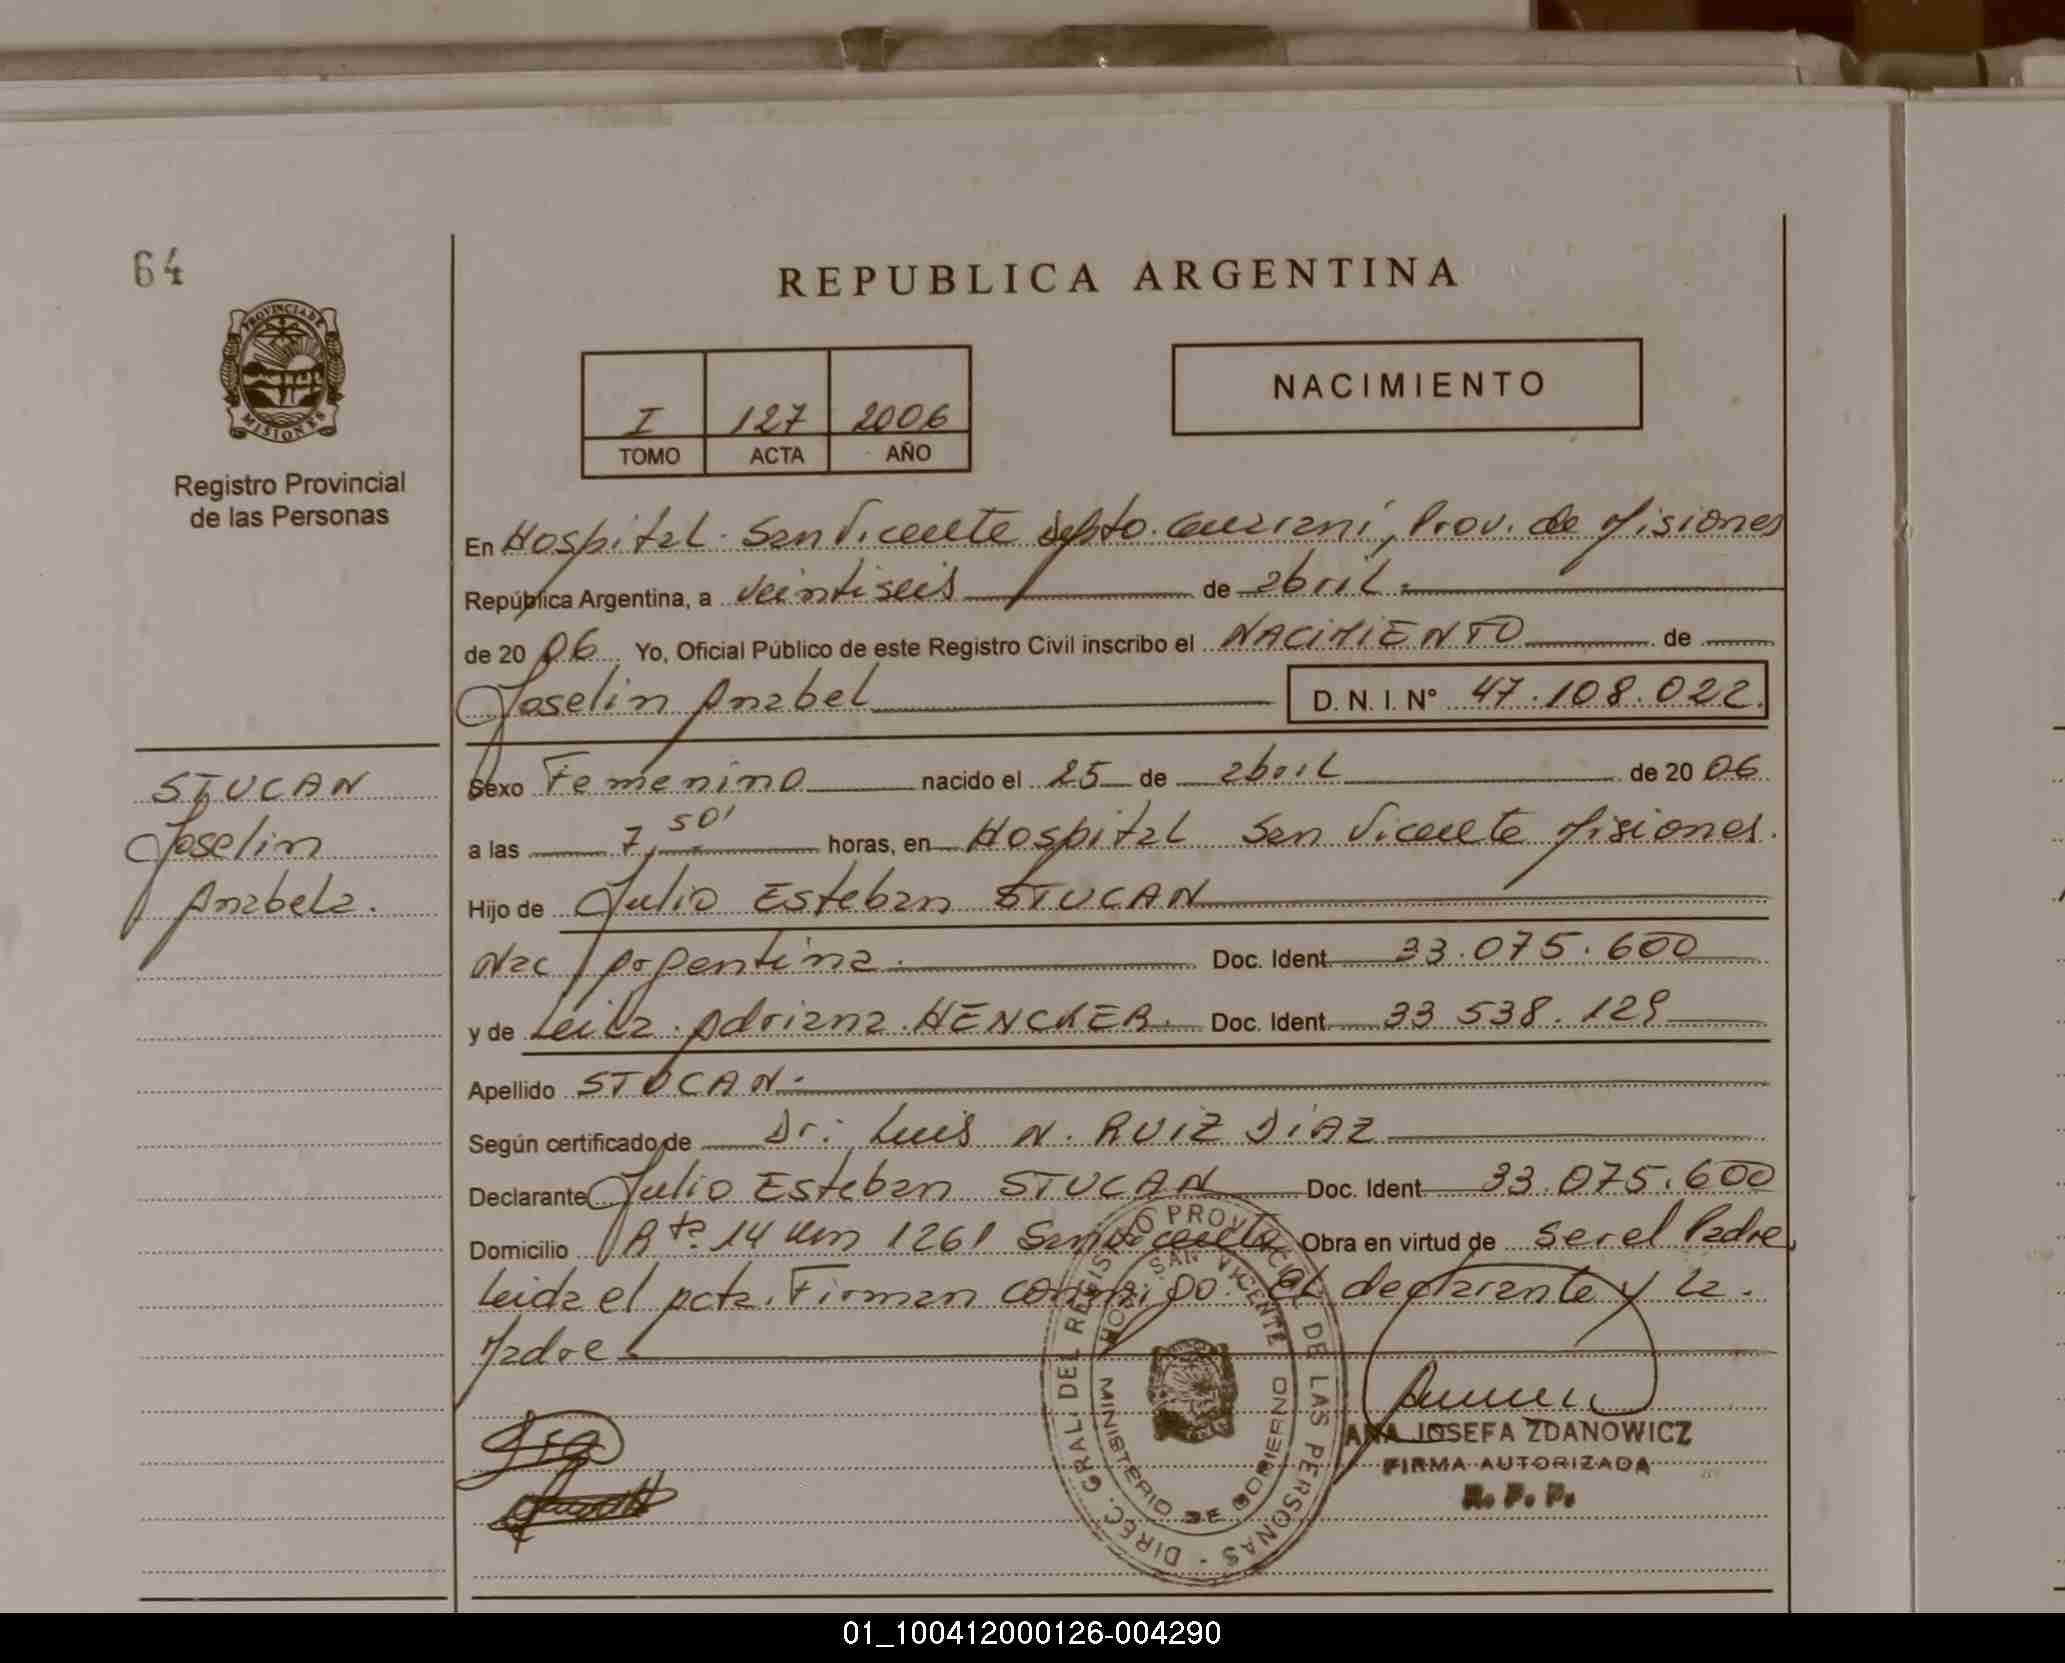 64
PROVINCIA DE
MISIONES
Registro Provincial
de las Personas
REPUBLICA ARGENTINA
I 127 2006
TOMO ACTA AÑO
NACIMIENTO
En Hospital San Vicente depto. Guaraní, Prov. de Misiones
República Argentina, a veintiseis de abril
de 2006 Yo, Oficial Público de este Registro Civil inscribo el NACIMIENTO de
Joselin Anabel D. N. I. N° 47.108.022.
STUCAN
Joselin
Anabela.
Sexo Femenino nacido el 25 de abril de 2006
a las 7,50' horas, en Hospital San Vicente Misiones.
Hijo de Julio Esteban STUCAN
Nac Argentina. Doc. Ident. 33.075.600
y de Leila Adriana HENCKER. Doc. Ident. 33 538.129
Apellido STUCAN.
Según certificado de Dr: Luis N. RUIZ DIAZ
Declarante Julio Esteban STUCAN Doc. Ident. 33.075.600
Domicilio Rta 14 Km 1261 San Vicente Obra en virtud de ser el Padre,
Leida el acta. Firman conmigo el declarante y la
Madre
DIREC. GRAL. DEL REGISTRO PROVINCIAL DE LAS PERSONAS
HOSP. SAN VICENTE
MINISTERIO DE GOBIERNO
ANA JOSEFA ZDANOWICZ
FIRMA AUTORIZADA
R. P. P.
01_100412000126-004290